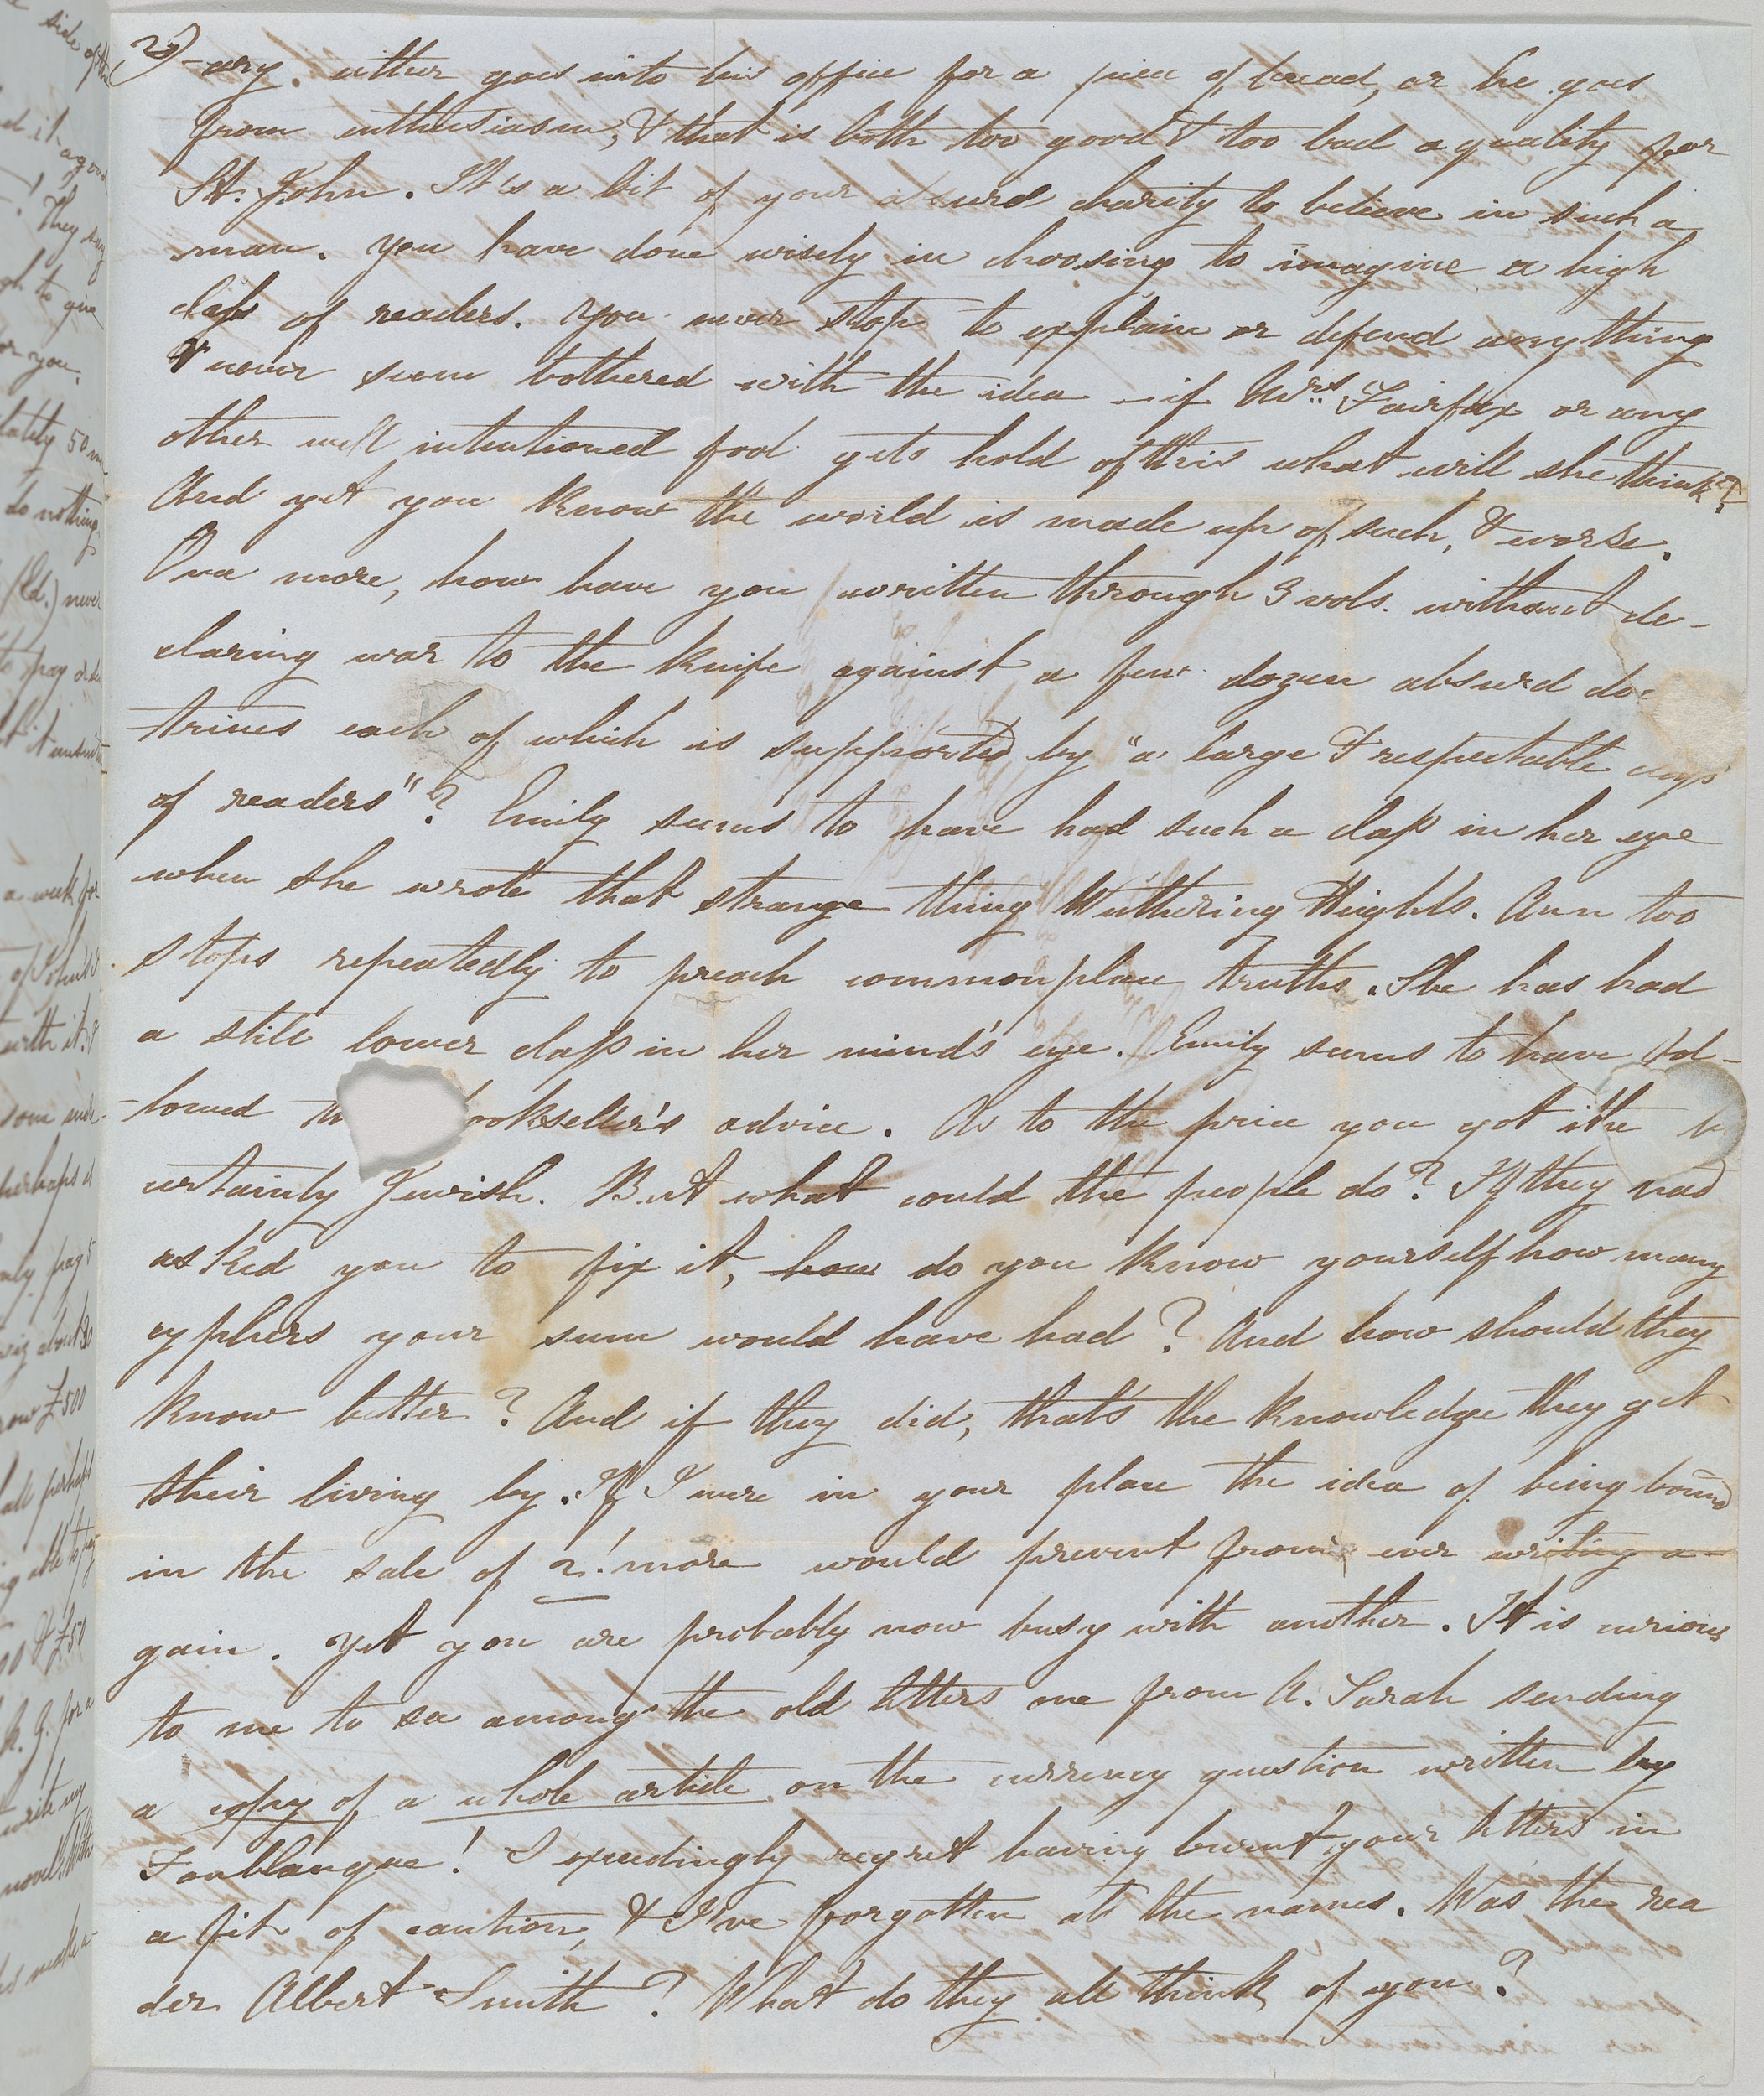 2) -ary. either goes into his office for a piece of bread, or he goes
from enthusiasm, & that is both too good & too bad a quality for
St. John. It's a bit of your absurd charity to believe in such a
man. You have done wisely in choosing to imagine a high
class of readers. You never stop to explain or defend anything
& never seem bothered with the idea – if Mrs. Fairfax or any
other well intentioned fool gets hold of this what will she think?
And yet you know the world is made up of such, & worse.
One more, how have you written through 3 vols. without de-
claring war to the knife against a few dozen absurd do
trines each of which is supported by "a large & respectable class
of readers"? Emily seems to have had such a class in her eye
when she wrote that strange thing Wuthering Heights. Ann too
stops repeatedly to preach commonplace truths. She has had
a still lower class in her mind's eye. Emily seems to have fol-
lowed th ookseller's advice. As to the price you got it
certainly Jewish. But what could the people do? If they had
asked you to fix it, how do you know yourself how many
cyphers your sum would have had? And how should they
know better? And if they did, that's the knowledge they get
their living by. If I were in your place the idea of being bound
in the sale of 2! more would prevent from ever writing a-
gain. Yet you are probably now busy with another. It is curious
to me to see among the old letters one from A. Sarah sending
a copy of a whole article on the currency question written by
Fonblanque! I exceedingly regret having burnt your letters in
a fit of caution, & I've forgotten all the names. Was the rea
der Albert Smith? What do they all think of you?